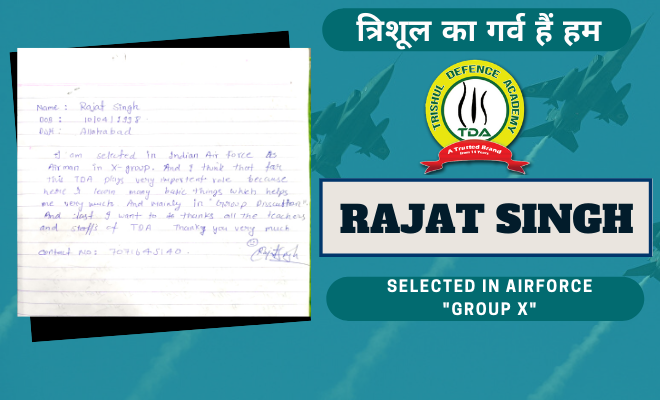 Name : Rajat Singh
DOB : 10/04/1998
Allahabad
I am selected in Indian Air force As
Airman in X-group. And I think that for
this TDA plays very important role because
here I learn many basic things which helps
me very much And mainly in "Group Discattion"
And last I want to do thanks all the teachers
and staffs of TDA Thanky you very much
contact No: 7071645140.
त्रिशूल का गर्व हैं हम
TRISHUL DEFENCE ACADEMY
TDA
A Trusted Brand
RAJAT SINGH
SELECTED IN AIRFORCE
"GROUP X"